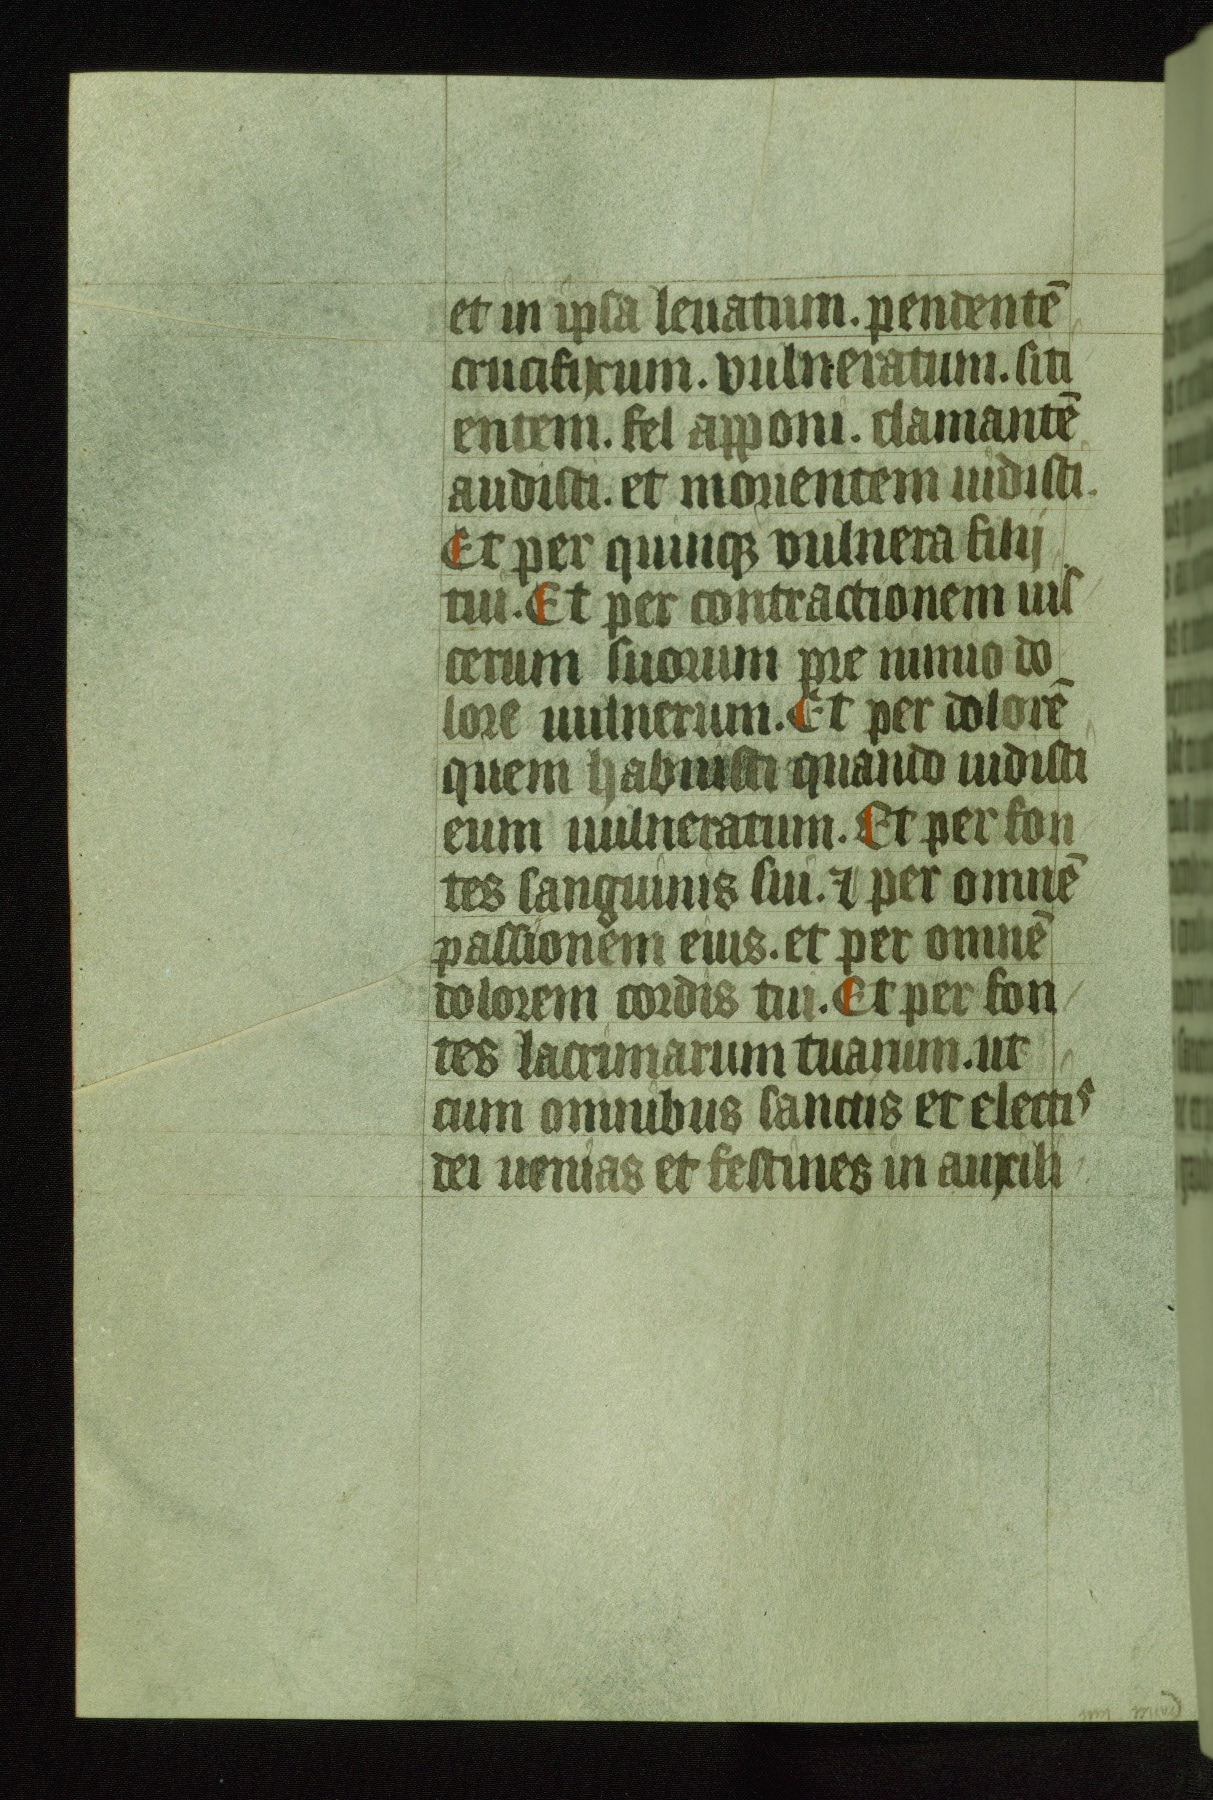 et in ipsa leuatum. pendentē
crucifixum. vulneratum. siti
entem. fel apponi. clamantē
audisti. et morientem uidisti.
Et per quinqꝫ vulnera filij
tui. Et per contractionem uis
cerum suorum pre nimio do
lore uulnerum. Et per dolorē
quem habuisti quando uidisti
eum uulneratum. Et per fon
tes sanguinis sui. ⁊ per omnē
passionem eius. et per omnē
dolorem cordis tui. Et per fon
tes lacrimarum tuarum. ut
cum omnibus sanctis et electis
dei uenias et festines in auxili